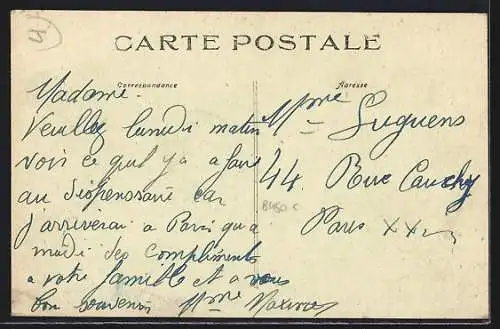 4
CARTE POSTALE
Correspondance
Adresse
Madame
Veuillez lundi matin
voir ce quil y a faire
au dispensaire car
j'arriverai a Paris qu a
midi des compliments
a votre famille et a vous
bon souvenir Mme
Mme Luguens
44 Rue Cauchy
Paris XV